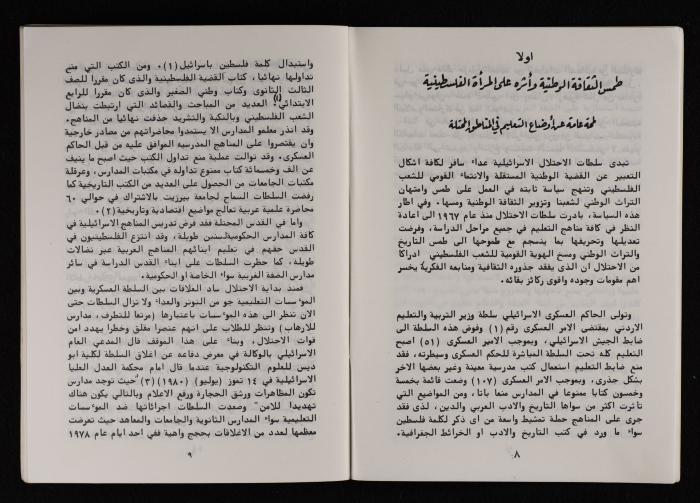 اولا
طمس الثقافة الوطنية وأثره على المرأة الفلسطينية
لمحة عامة عن أوضاع التعليم في المناطق المحتلة
تبدى سلطات الاحتلال الاسرائيلية عداء سافر لكافة اشكال
التعبير عن القضية الوطنية المستقلة والانتماء القومي للشعب
الفلسطيني وتنهج سياسة ثابته في العمل على طمس وامتهان
التراث الوطني لشعبنا وتزوير الثقافة الوطنية ومسها. وفي اطار
هذه السياسة، بادرت سلطات الاحتلال منذ عام ١٩٦٧ الى اعادة
النظر في كافة مناهج التعليم في جميع مراحل الدراسة، وفرضت
تعديلها وتحريفها بما ينسجم مع طموحها الى طمس التاريخ
والتراث الوطني ومسخ الهوية القومية للشعب الفلسطيني ادراكا
من الاحتلال ان الذى يفقد جذوره الثقافية ومنابعه الفكرية يخسر
اهم مقومات وجوده واقوى ركائز بقائه.
وتولى الحاكم العسكرى الاسرائيلي سلطة وزير التربية والتعليم
الاردني بمقتضى الامر العسكرى رقم (١) وفوض هذه السلطة الى
ضابط الجيش الاسرائيلي، وبموجب الامير العسكرى (٥١) اصبح
التعليم كله تحت السلطة المباشرة للحكم العسكرى وسيطرته، فقد
منع ضابط التعليم استعمال كتب مدرسية معينة وغير بعضها الاخر
بشكل جذرى، وبموجب الامر العسكرى (١٠٧) وضعت قائمة بخمسة
وخمسون كتابا ممنوعا في المدارس منعا باتا، ومن المواضيع التي
تأثرت اكثر من سواها التاريخ والادب العربي والدين، لذى فقد
جرى على المناهج حملة تمشيط واسعة من اى ذكر لكلمة فلسطين
سواء ما ورد في كتب التاريخ والادب او الخرائط الجغرافية.
٨
واستبدال كلمة فلسطين باسرائيل (١). ومن الكتب التي منع
تداولها نهائيا، كتاب القضية الفلسطينية والذى كان مقررا للصف
الثالث الثانوى وكتاب وطني الصغير والذى كان مقررا للرابع
الابتدائي، العديد من المباحث والقصائد التي ارتبطت بنضال
الشعب الفلسطيني وبالنكبة والتشريد حذفت نهائيا من المناهج.
وقد انذر معلمو المدارس الا يستمدوا محاضراتهم من مصادر خارجية
وان يقتصروا على المناهج المدرسيه الموافق عليه من قبل الحاكم
العسكرى. وقد توالت عملية منع تداول الكتب حيث اصبح ما ينيف
عن الف وخمسمائة كتاب ممنوع تداوله في مكتبات المدارس، وعرقلة
مكتبات الجامعات من الحصول على العديد من الكتب التاريخية كما
رفضت السلطات السماح لجامعة بيرزيت بالاشتراك في حوالي ٦٠
محاضرة علمية عربية تعالج مواضيع اقتصادية وتاريخية (٢).
واما في القدس المحتلة فقد فرض تدريس المناهج الاسرائيلية في
كافة المدارس الحكومية لسنين طويلة، وقد انتزع الفلسطينيون في
القدس حقهم في تعليم ابنائهم المناهج العربية عبر نضالات
طويله، كما حظرت السلطات على ابناء القدس الدراسة في سائر
مدارس الضفة الغربية سواء الخاصة او الحكومية.
فمنذ بداية الاحتلال ساد العلاقات بين السلطة العسكرية وبين
المؤسسات التعليمية جو من التوتر والعداء ولا تزال السلطات حتى
الان تنظر الى هذه المؤسسات باعتبارها (مرتعا للتطرف، مدارس
للارهاب) وتنظر للطلاب على انهم عنصرا مقلق وخطرا يهدد امن
قوات الاحتلال، وبناء على هذا الموقف قال المدعي العام
الاسرائيلي بالوكالة في معرض دفاعه عن اغلاق السلطة لكلية ابو
ديس للعلوم التكنولوجية عندما قال امام محكمة العدل العليا
الاسرائيلية في ١٤ تموز (يوليو) (١٩٨٠) (٣) "حيث توجد مدارس
تكون المظاهرات ورشق الحجارة ورفع الاعلام وبالتالي يكون هناك
تهديدا للامن" وصعدت السلطات اجرائاتها ضد المؤسسات
التعليمية سواء المدارس الثانوية والجامعات والمعاهد حيث تعرضت
معظمها لعدد من الاغلاقات بحجج واهية ففي احد ايام عام ١٩٧٨
٩